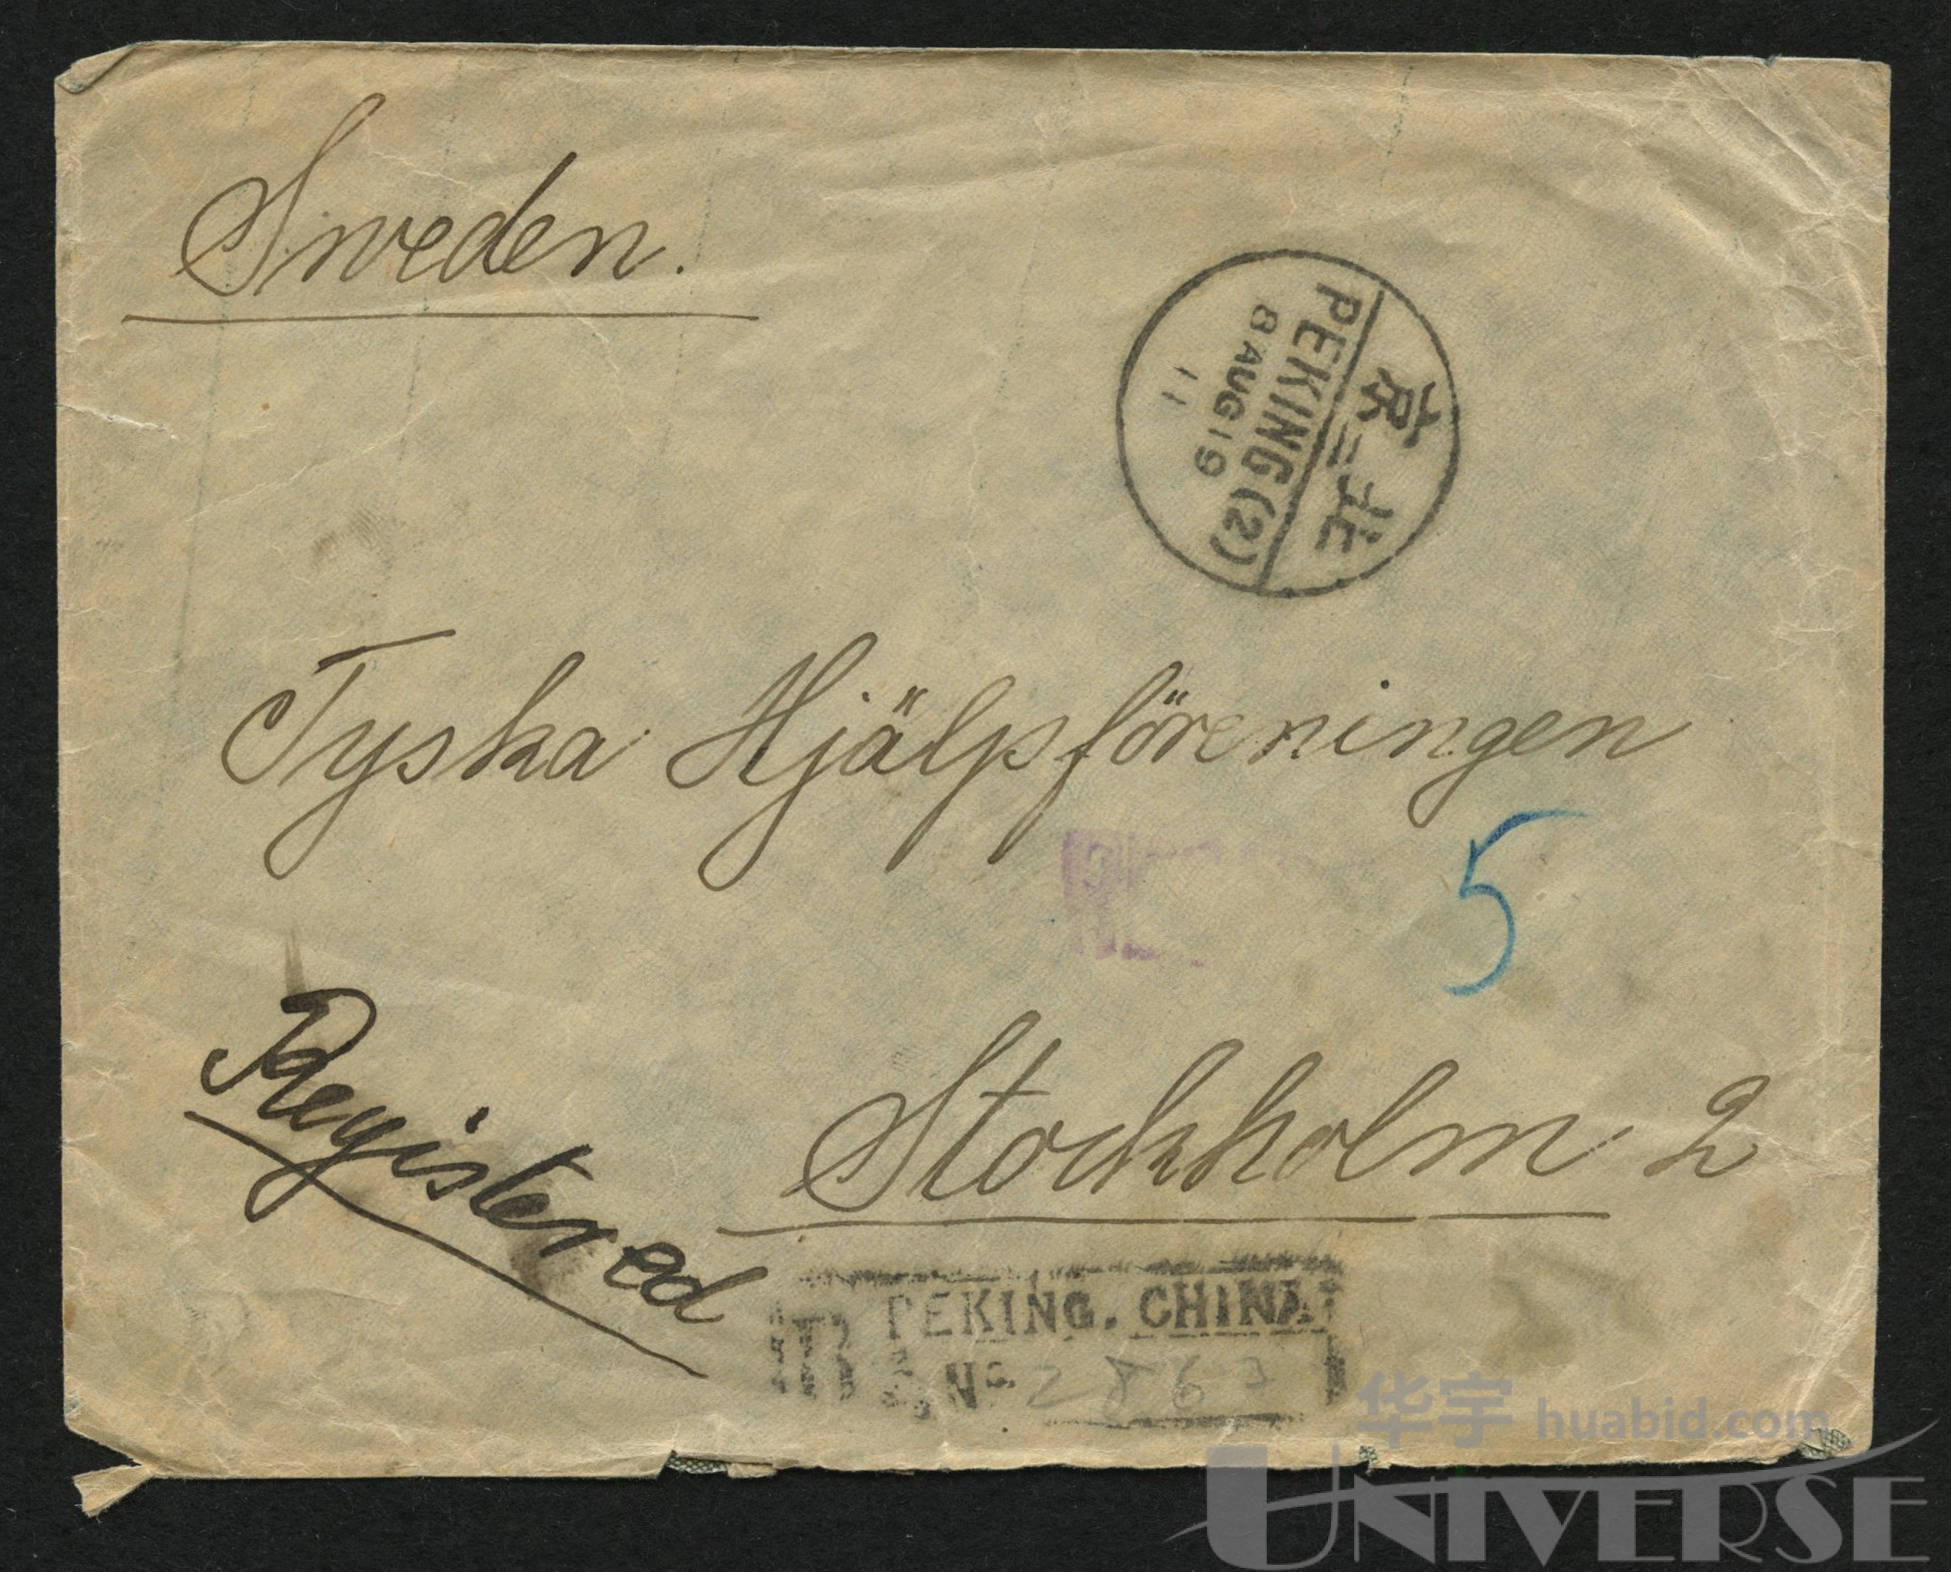 Sweden.
北京
二
PEKING (2)
8 AUG 19
11
Tyska Hjälpföreningen
5
Stockholm 2
Registered
R PEKING. CHINA
No 2863
华宇 huabid.com
UNIVERSE